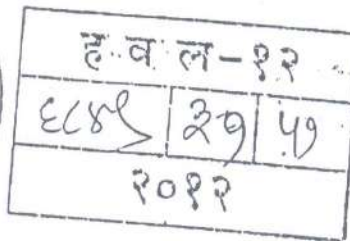 ह व ल-१२
६८४९ ५७
२०१२